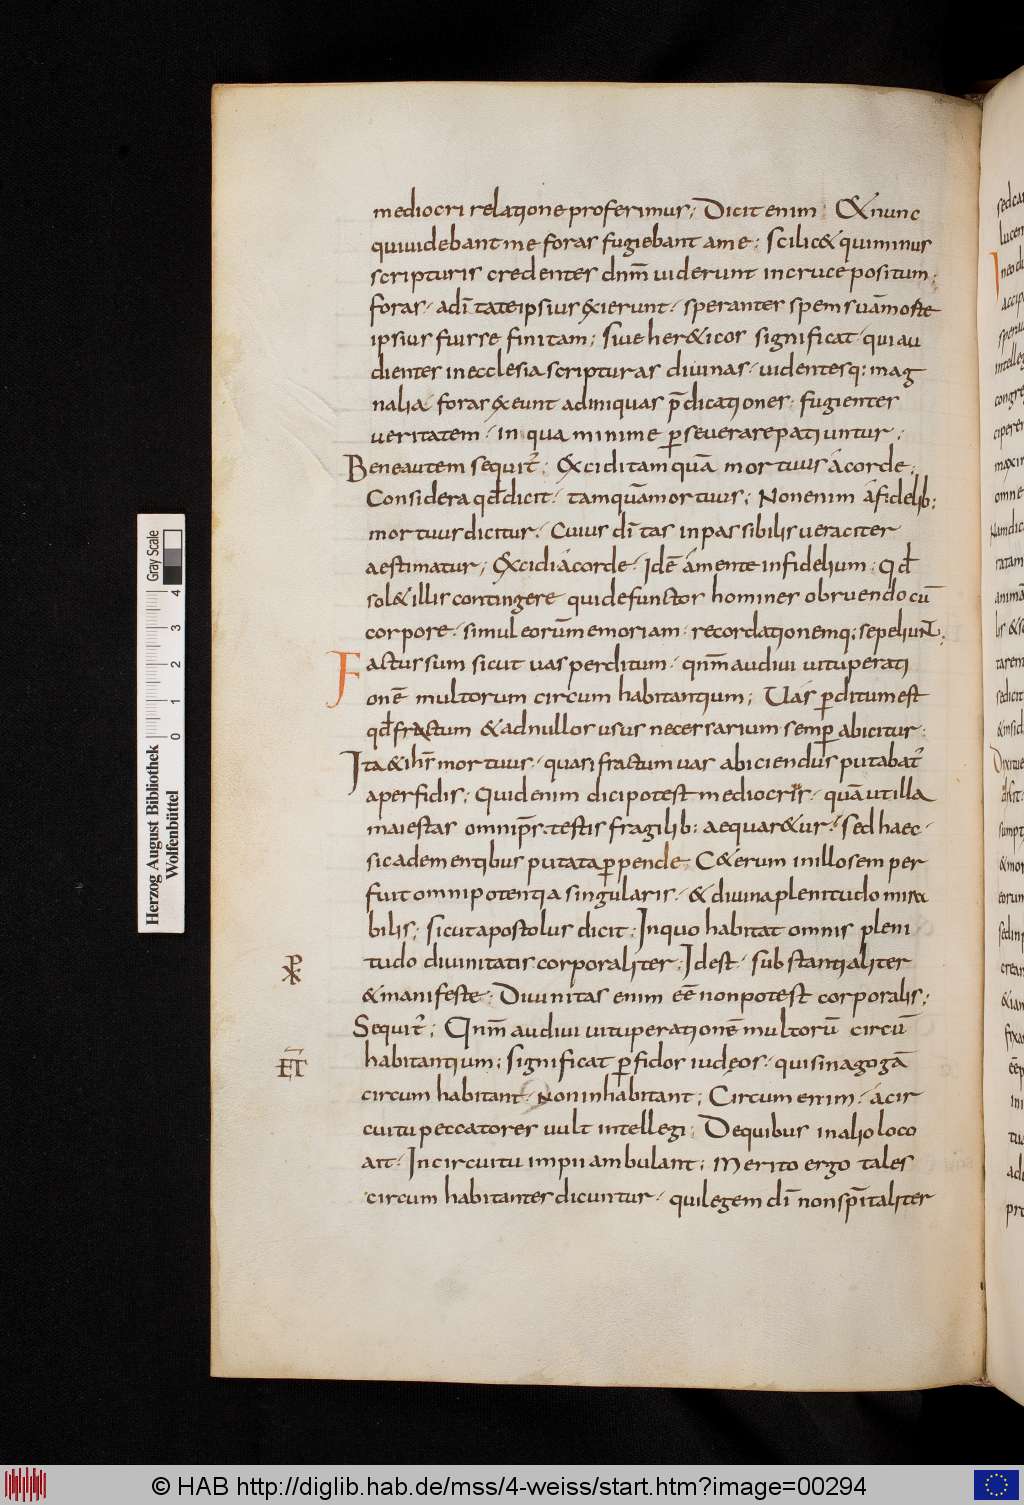 mediocri relatione proferimus; Dicit enim; & nunc
qui uidebant me foras fugiebant a me; scilic& qui minus
scripturis credentes dnm̄ uiderunt in cruce positum;
foras· a di̅tate ipsius exierunt· sperantes spem suā morte
ipsius fuisse finitam; siue her&icos significat· qui au
dientes in ecclesia scripturas diuinas· uidentesq; mag
nalia· foras exeunt ad iniquas p̄dicationes· fugientes
ueritatem· in qua minime ꝑseuerare patiuntur;
Bene autem sequit᷒; Excidi tamquā mortuus a corde;
Considera qđ dicit· tamquā mortuus; Non enim a fidelib;
mortuus dicitur· Cuius di̅tas inpassibilis ueraciter
aestimatur; Excidi a corde· Idē a mente infidelium; Qđ
sol& illis contingere qui defunctos homines obruendo cū
corpore· simul eorū memoriam· recordationemq; sepeliunt;
Factus sum sicut uas perditum· qnm̄ audiui uituperati
onē multorum circum habitantium; Uas ꝑditum est
qđ fractum & ad nullos usus necessarium semꝑ abicitur;
Ita & ihs̄ mortuus· quasi fractum uas abiciendus putabat᷒
a perfidis; Quid enim dici potest mediocris· quā ut illa
maiestas omnip̄s· testis fragilib; aequar&ur· Sed haec·
sic a dementibus putata ꝑpende; C&erum in illo semper
fuit omnipotentia singularis· & diuina plenitudo mira
bilis; sicut apostolus dicit; In quo habitat omnis pleni
tudo diuinitatis corporaliter; Id est· substantialiter
& manifeste; Diuinitas enim eē non potest corporalis;
Sequit᷒; Qnm̄ audiui uituperationē multorū circū
habitantium; significat ꝑfidos iudęos· qui sinagogā
circum habitant· Non inhabitant; Circum enim· a cir
cuitu peccatores uult intellegi; De quibus in alio loco
ait· In circuitu impii ambulant; Merito ergo tales
circum habitantes dicuntur· qui legem di̅ non sp̄italiter
Herzog August Bibliothek
Wolfenbüttel
0 1 2 3 4
Gray Scale
© HAB http://diglib.hab.de/mss/4-weiss/start.htm?image=00294